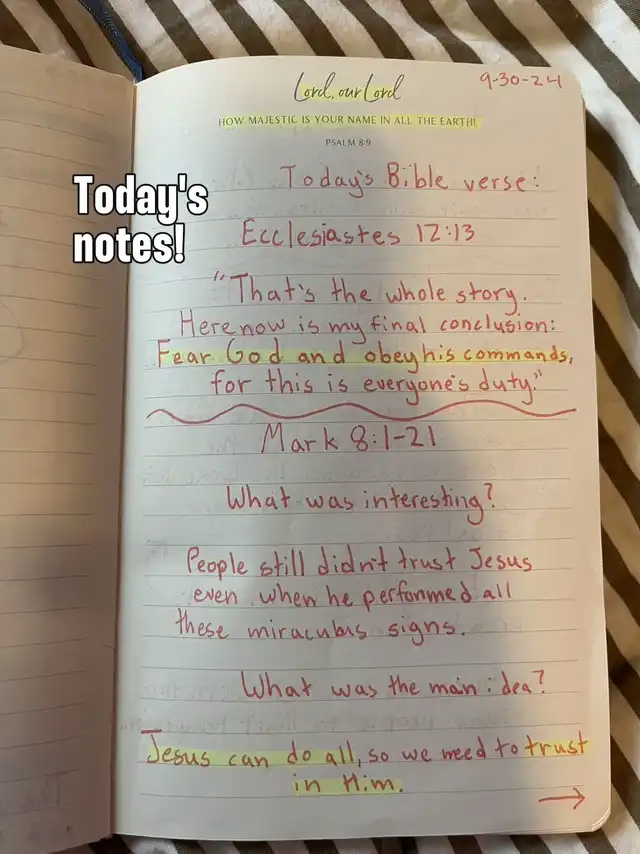 9-30-24
Lord, our Lord
HOW MAJESTIC IS YOUR NAME IN ALL THE EARTH!
PSALM 8:9
Today's
notes!
Today's Bible verse:
Ecclesiastes 12:13
"That's the whole story.
Here now is my final conclusion:
Fear God and obey his commands,
for this is everyone's duty."
Mark 8:1-21
What was interesting?
People still didn't trust Jesus
even when he performed all
these miraculous signs.
What was the main idea?
Jesus can do all, so we need to trust
in Him.